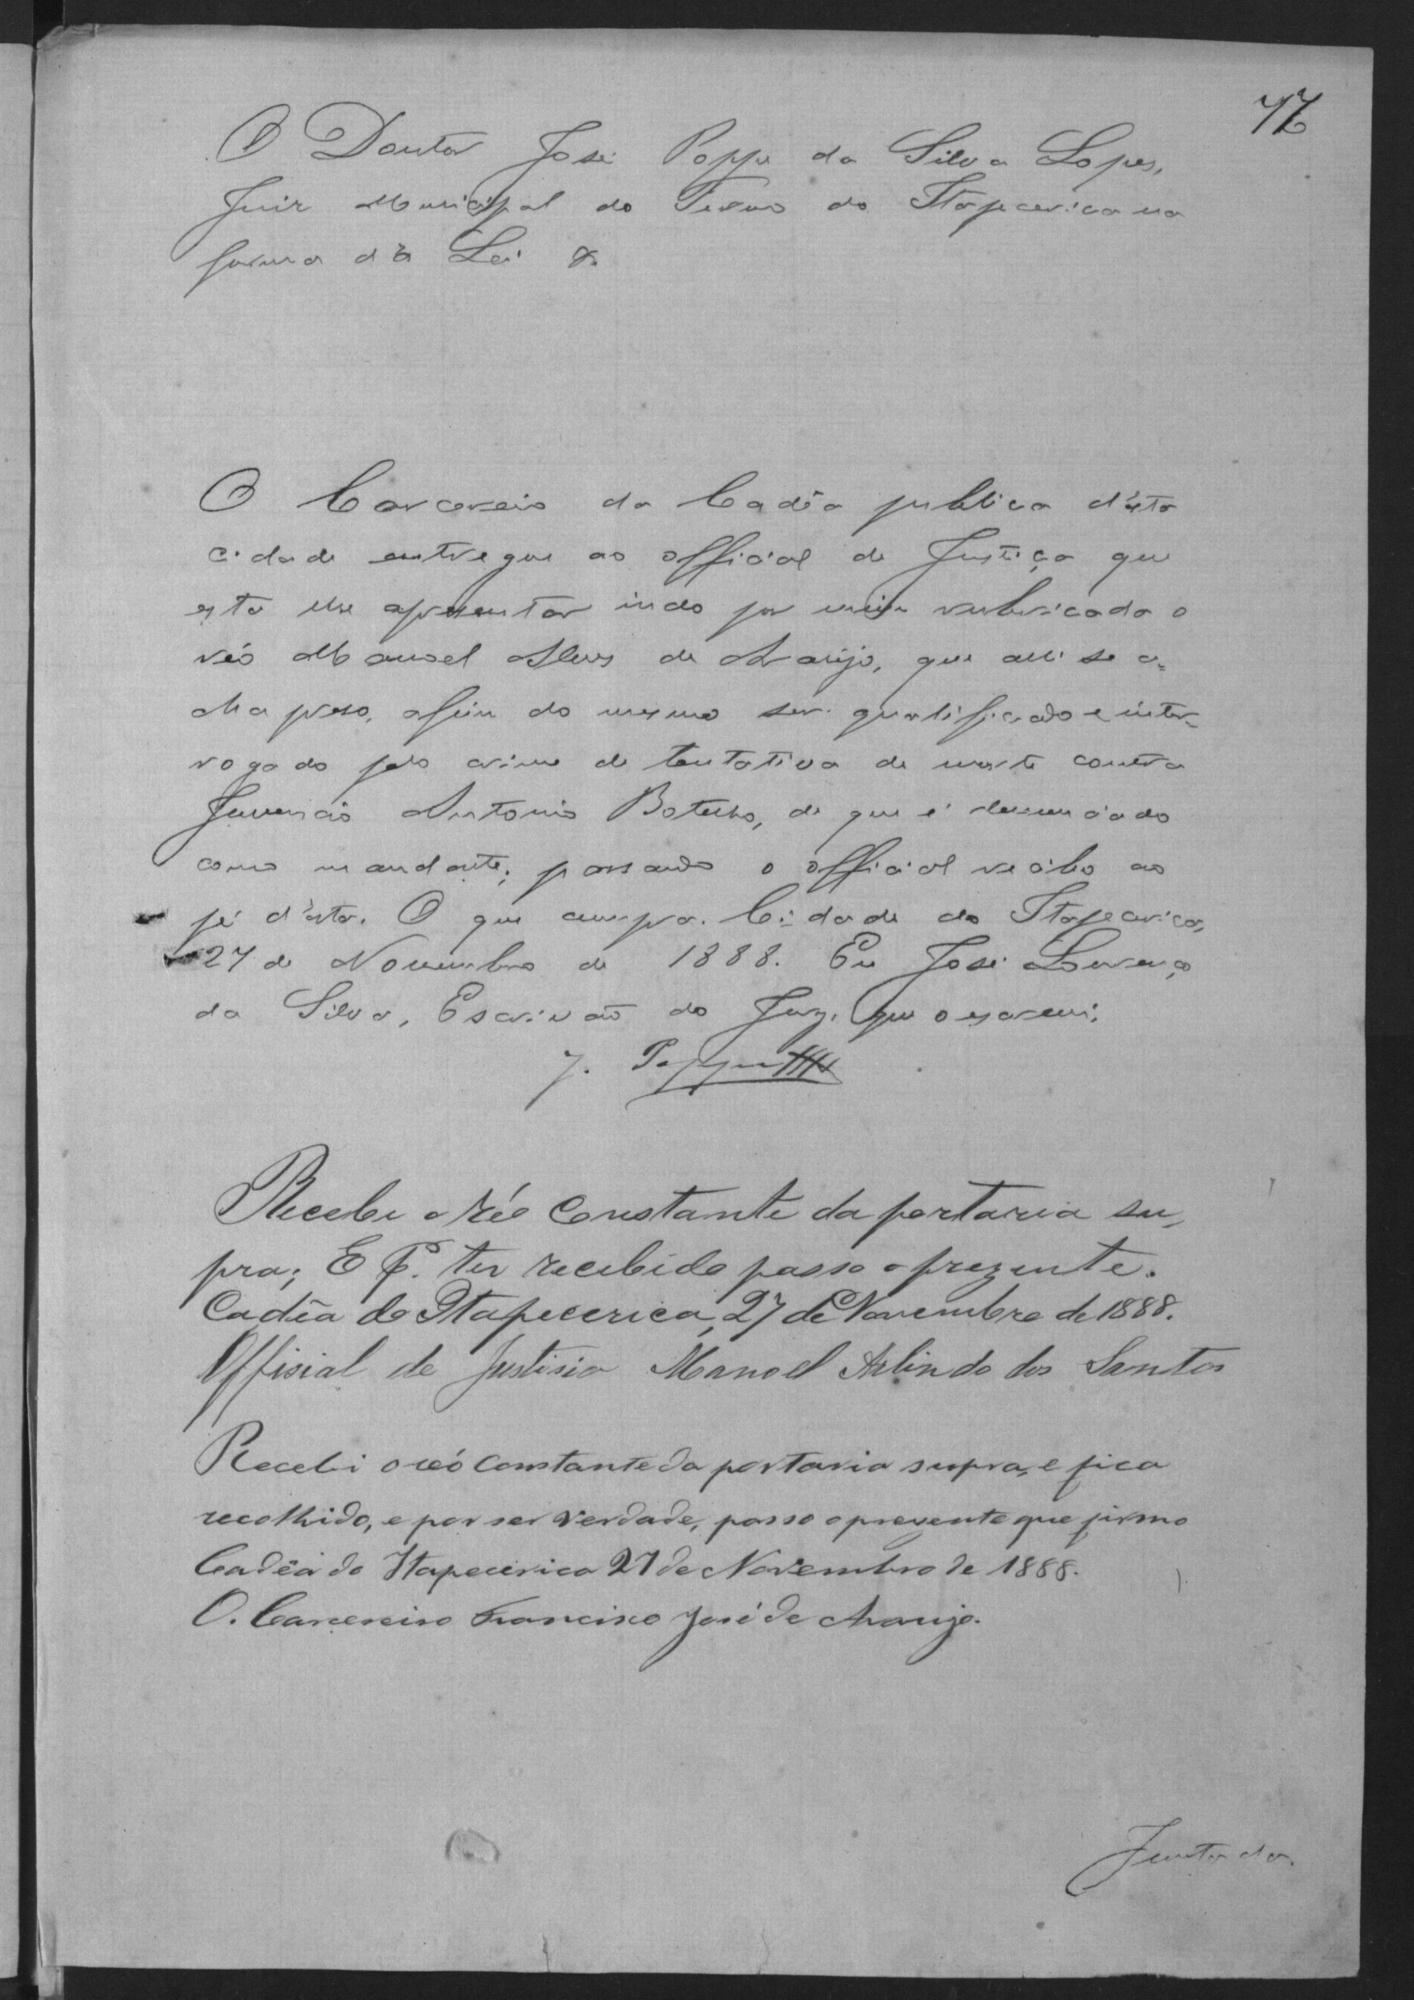 77
O Doutor José Poppe da Silva Lopes,
Juiz Municipal do Termo de Itapecerica na
forma da Lei &.
O Carcereiro da Cadêa publica d'esta
cidade entregue ao official de Justiça que
esta lhe apresentar indo por mim rubricada o
réo Manoel Alves de Araujo, que alli se a-
cha preso, afim do mesmo ser qualificado e inter-
rogado pelo crime de tentativa de morte contra
Juvencio Antonio Botelho, de que é denunciado
como mandante; passando o official recibo ao
pé d'esta. O que cumpra. Cidade de Itapecerica,
27 de Novembro de 1888. Eu José Lourenço
da Silva, Escrivão do Jury, que o escrevi.
J. Poppe
Recebi o réo Constante da portaria su-
pra; E P. ter recebido passo o prezente.
Cadêa de Itapecerica, 27 de Novembro de 1888.
Offisial de Justisia Manoel Arlindo dos Santos
Recebi o reó Constante da portaria supra, e fica
recolhido, e por ser verdade, passo o presente que firmo
Cadêa de Itapecerica 27 de Novembro de 1888.
O. Carcereiro Francisco José de Araujo.
Juntada.